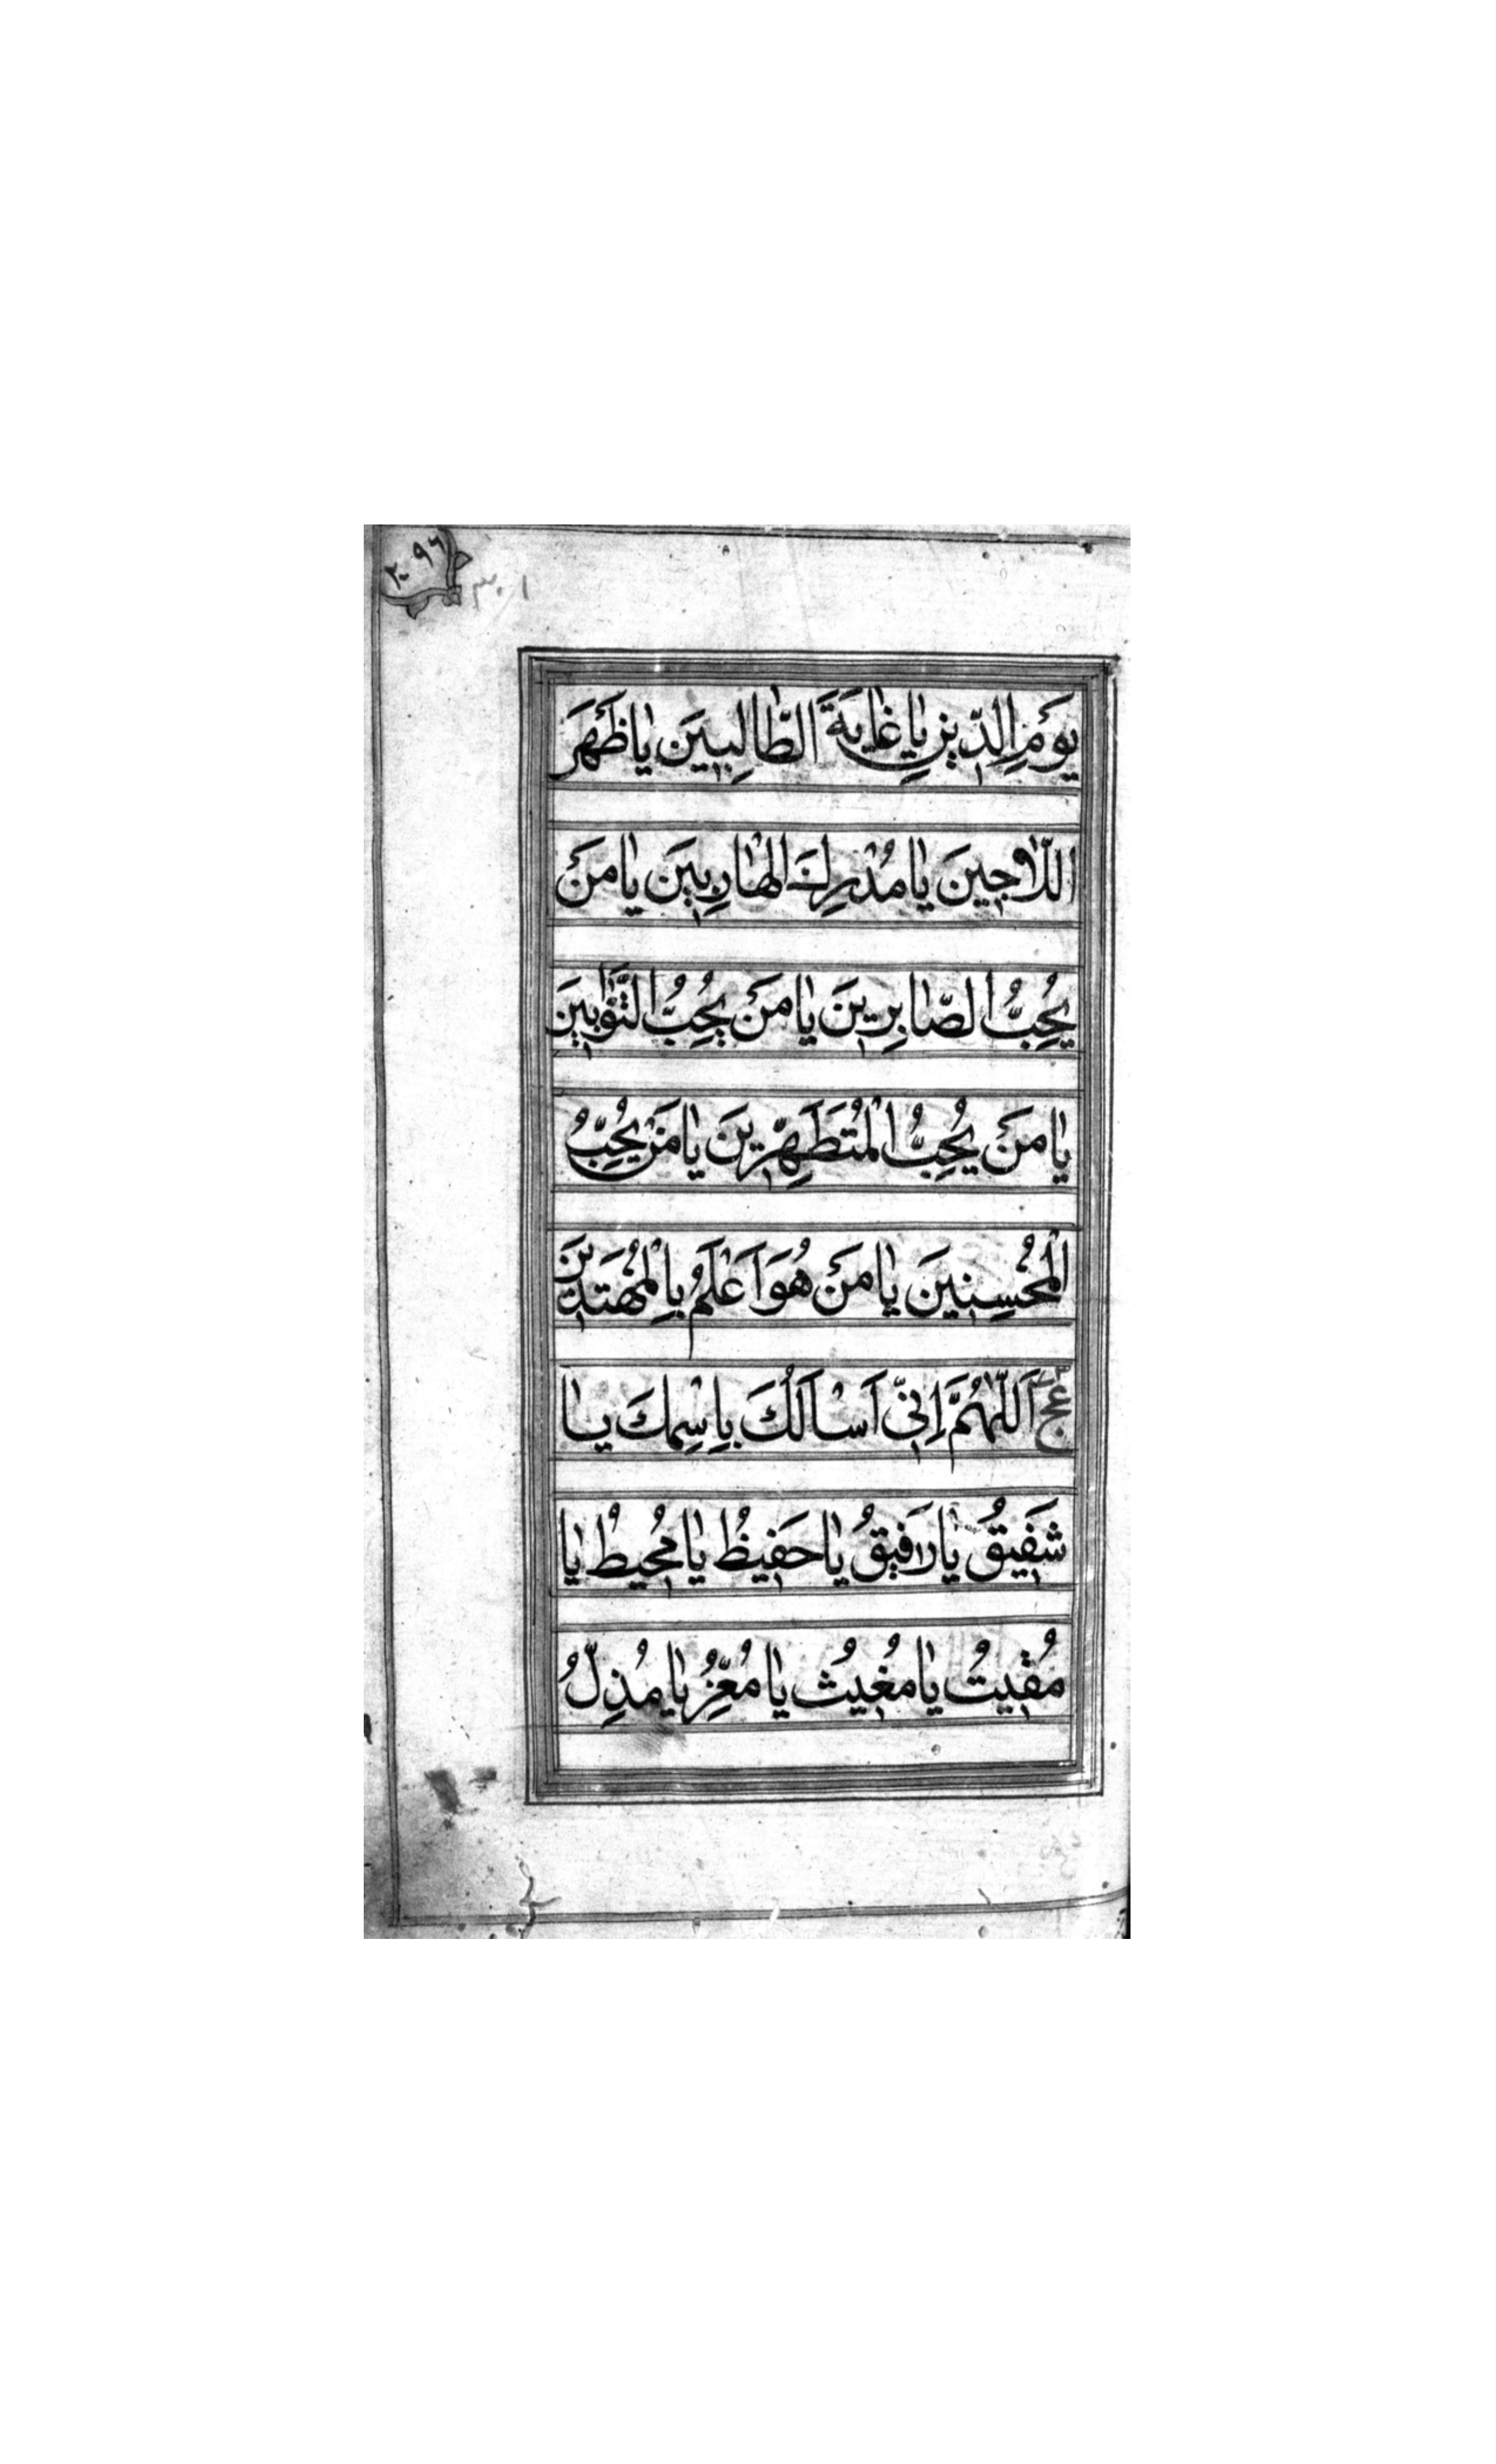 ۲۰۹۶
۳۰۱
يَوْمِ الدّينِ يا غايَةَ الطّالِبينَ يا ظَهْرَ
اللّاجينَ يا مُدْرِكَ الهارِبينَ يا مَنْ
يُحِبُّ الصّابِرينَ يا مَنْ يُحِبُّ التَّوّابينَ
يا مَنْ يُحِبُّ الْمُتَطَهِّرينَ يا مَنْ يُحِبُّ
الْمُحْسِنينَ يا مَنْ هُوَ اَعْلَمُ بِالْمُهْتَدينَ
عج اَللّهُمَّ اِنّي اَسْاَلُكَ بِاسْمِكَ يا
شَفيقُ يا رَفيقُ يا حَفيظُ يا مُحيطُ يا
مُقيتُ يا مُغيثُ يا مُعِزُّ يا مُذِلُّ